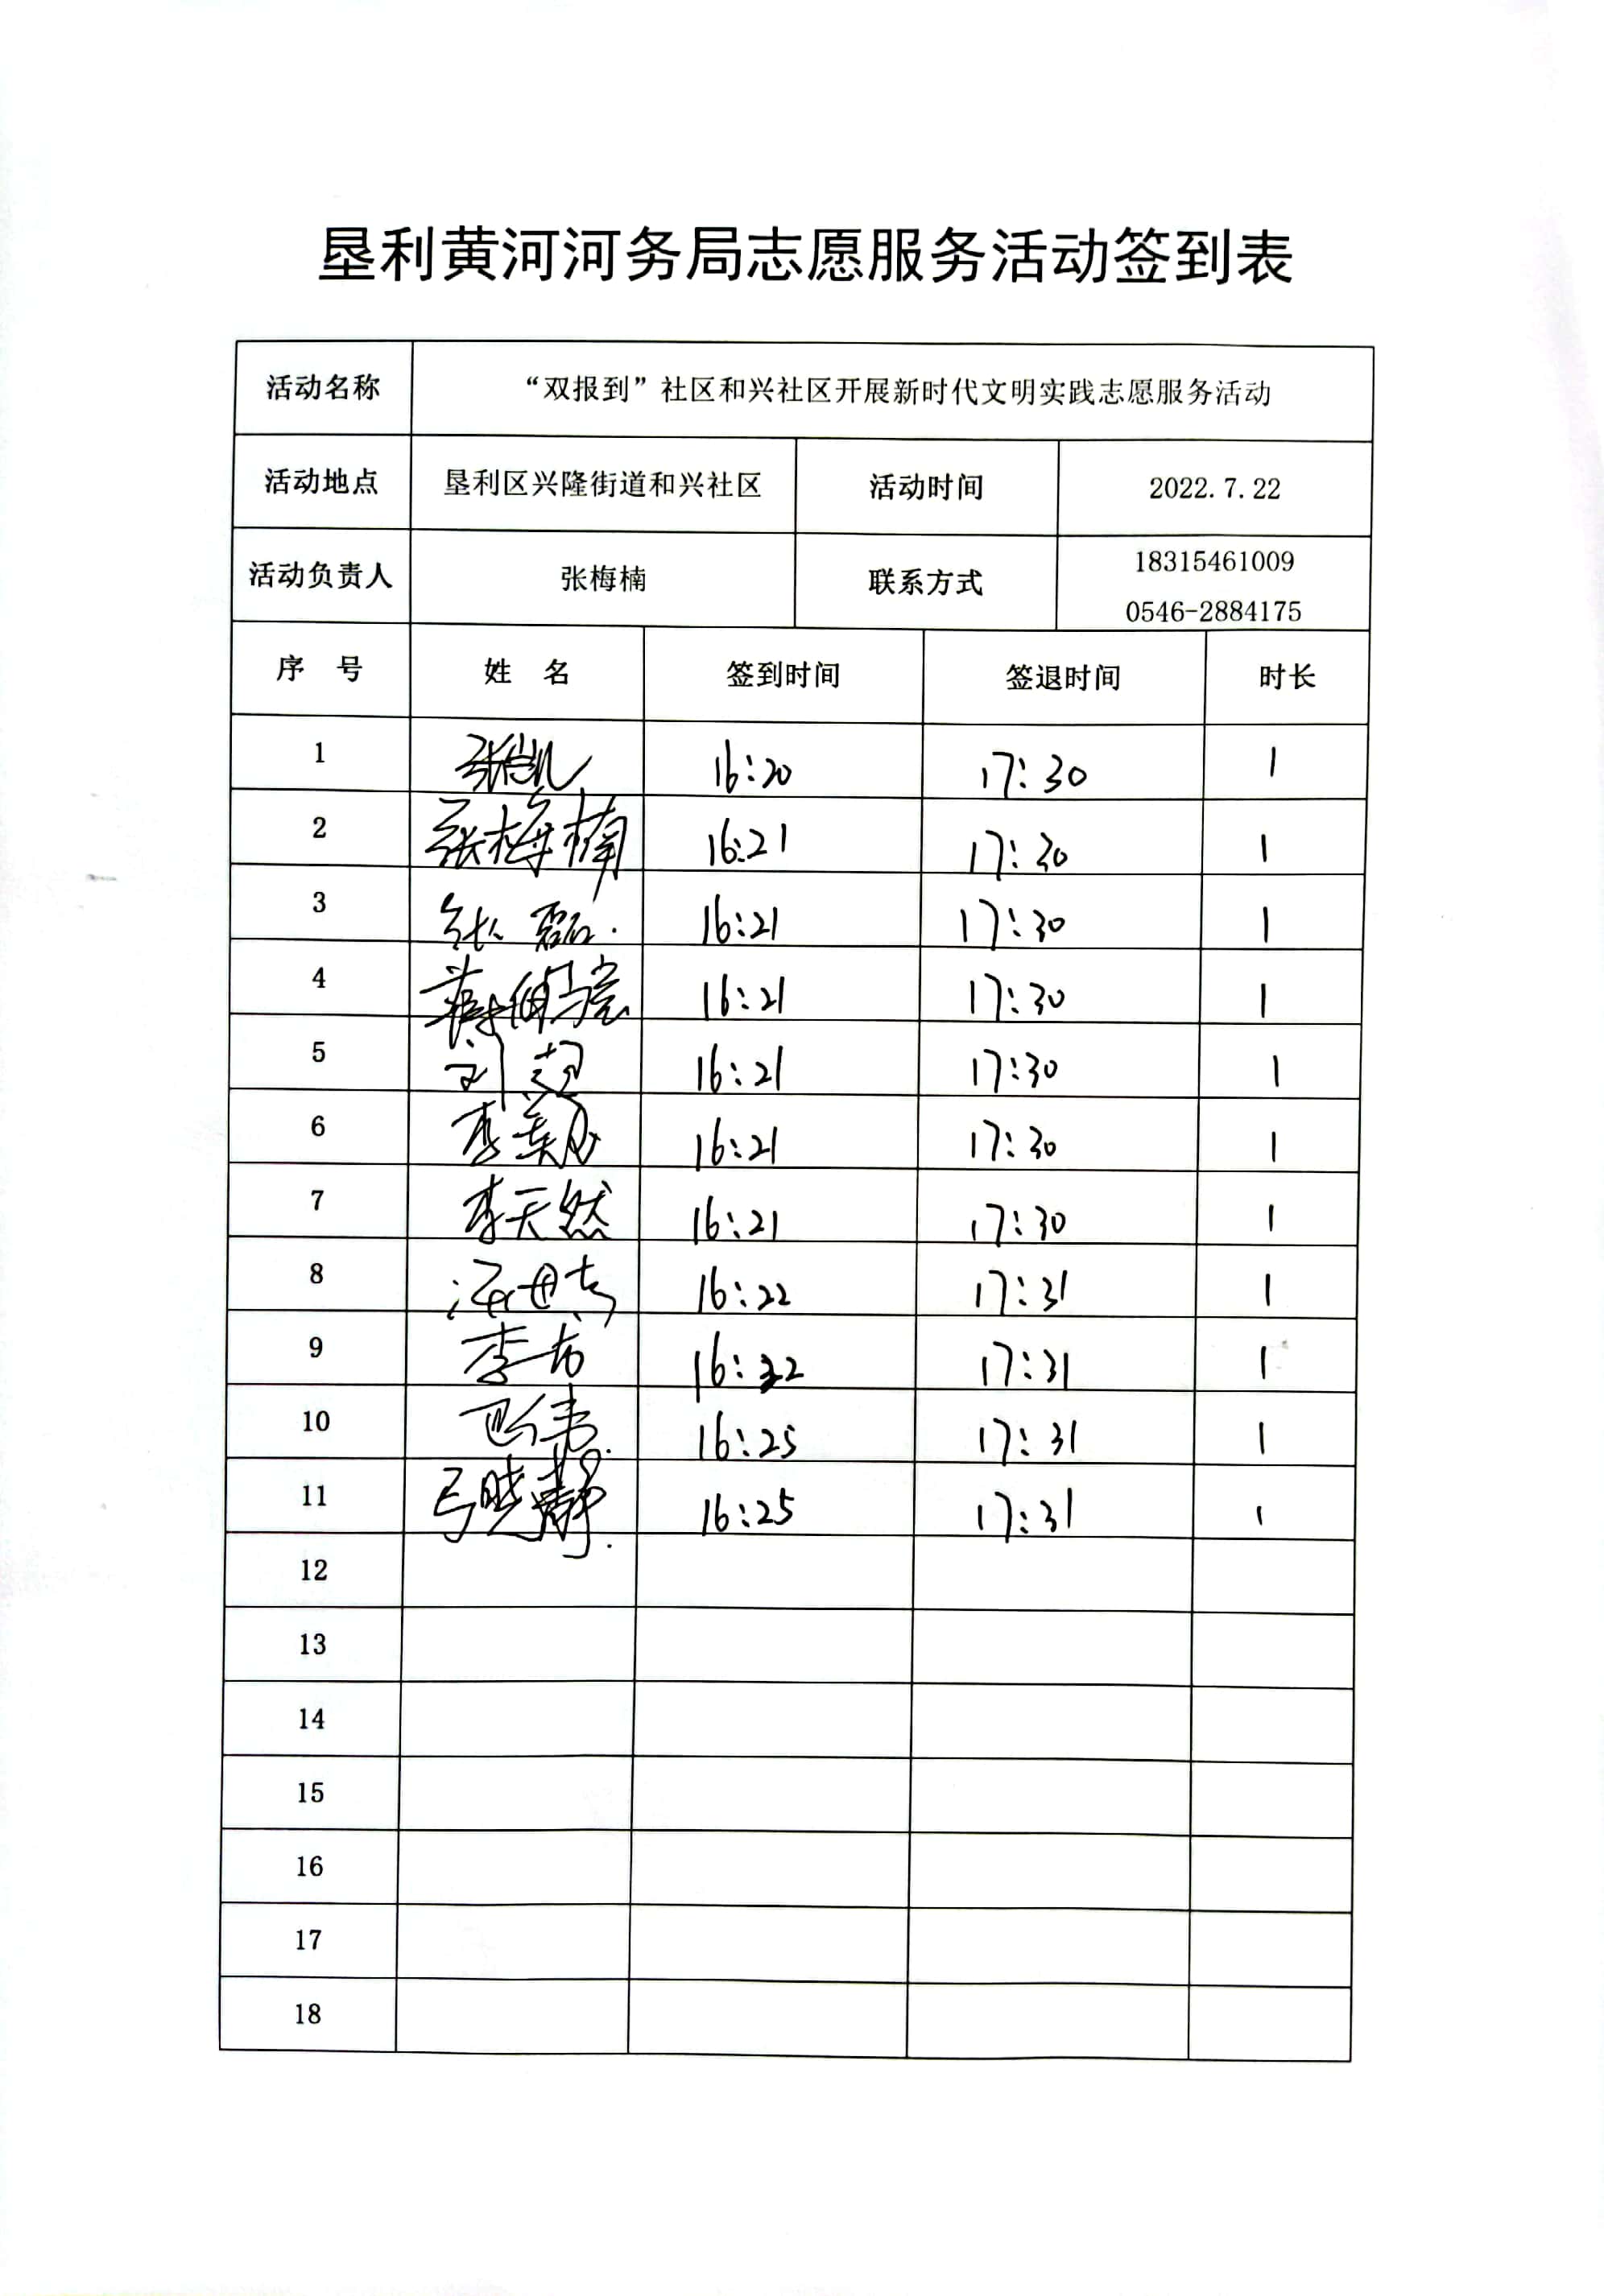 垦利黄河河务局志愿服务活动签到表
活动名称 “双报到”社区和兴社区开展新时代文明实践志愿服务活动
活动地点 垦利区兴隆街道和兴社区 活动时间 2022.7.22
活动负责人 张梅楠 联系方式 18315461009
0546-2884175
序 号 姓 名 签到时间 签退时间 时长
1 张凯 16:20 17:30 1
2 张梅楠 16:21 17:30 1
3 张磊 16:21 17:30 1
4 16:21 17:30 1
5 刘超 16:21 17:30 1
6 李 16:21 17:30 1
7 李天然 16:21 17:30 1
8 16:22 17:31 1
9 李 16:22 17:31 1
10 巴伟 16:25 17:31 1
11 马晓静 16:25 17:31 1
12
13
14
15
16
17
18